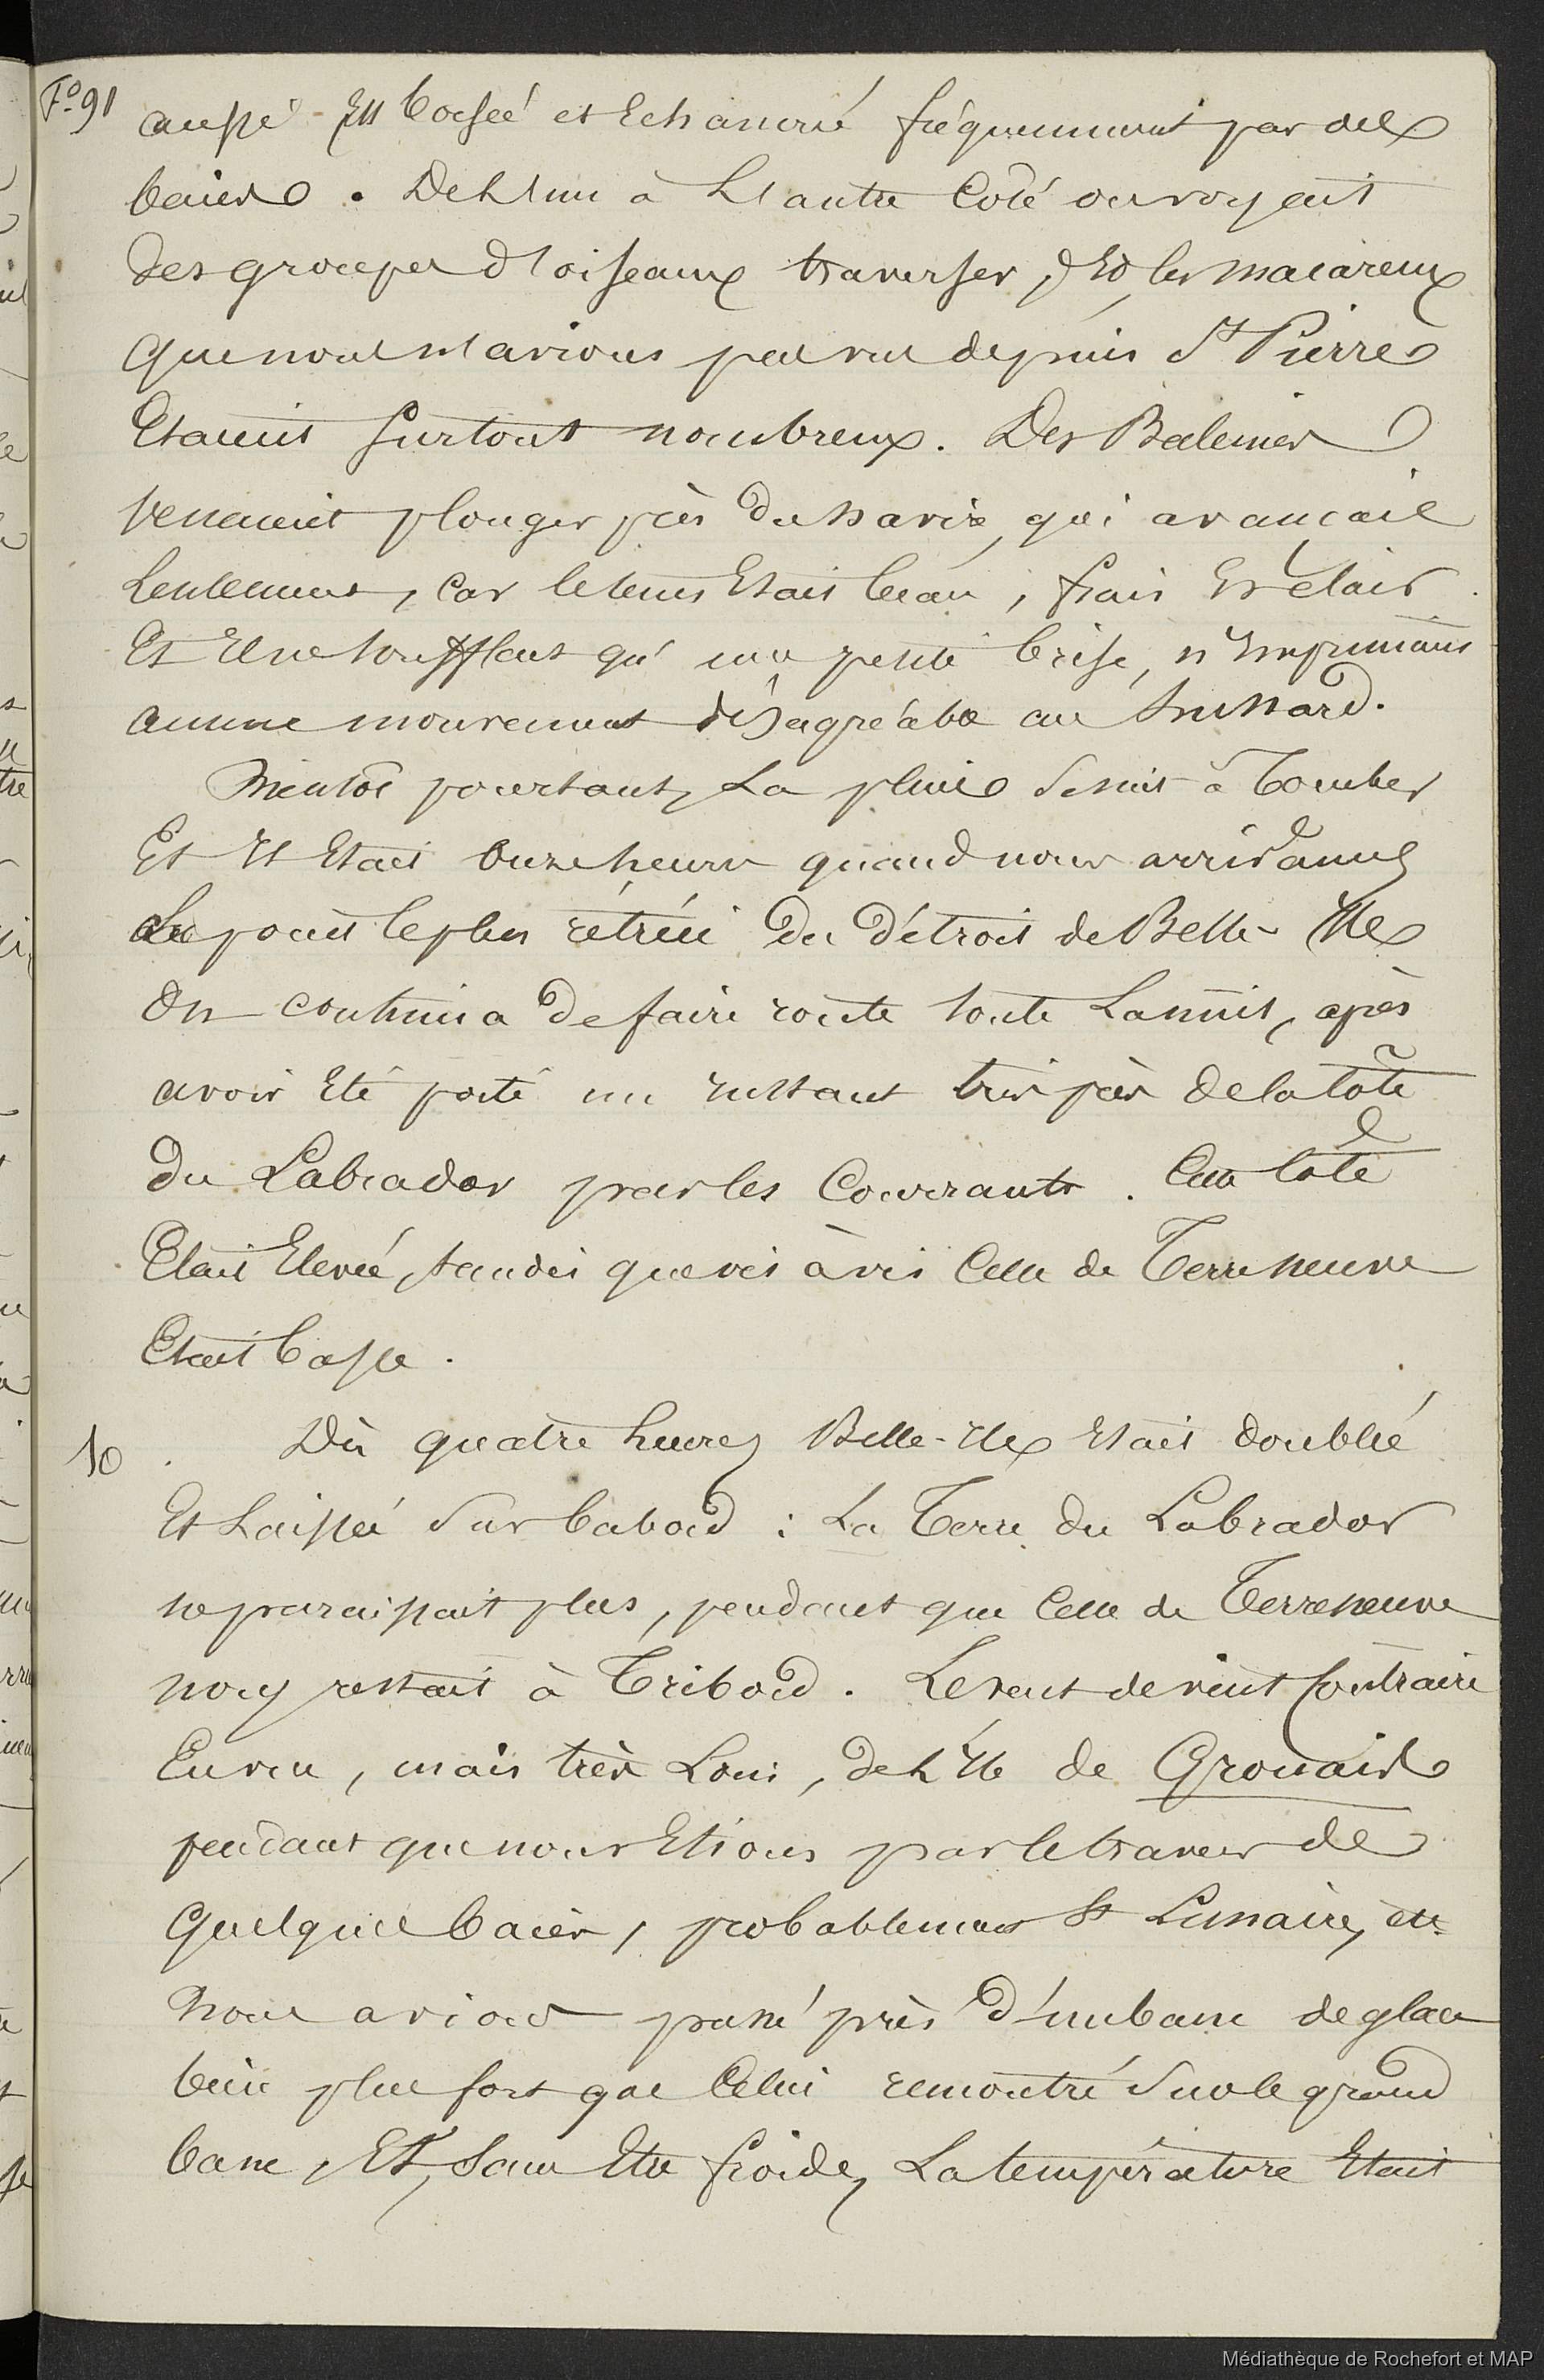 Fo 91
aussi est boisée et Echancrée fréquemment par des
baies. De L'une à L'autre Côté on voyait
des groupes d'oiseaux traverser, Et les macareux
que nous n'avions pas vus depuis St Pierre
Etaient surtout nombreux. Des Baleines
venaient plonger près du navire, qui avançait
Lentement, car le tems Etait beau, frais Et clair
Et Il ne soufflait qu'une petite brise, n'Imprimant
aucune mouvement désagréable au
Bientôt pourtant, La pluie se mit à Tomber
Et Il Etait Onze heures quand nous arrivames
au point le plus rétréci du détroit de Belle-Ile
On continua de faire route toute La nuit, après
avoir Eté porté un Instant très près de la Côte
du Labrador par les Courrants. Cette Côte
Etait Elevée, tandis que vis à vis Celle de Terreneuve
Etait basse.
10
Dès quatre heures Belle-Ile Etait doublée
Et Laissée sur babord : La Terre du Labrador
ne paraissait plus, pendant que Celle de Terreneuve
nous restait à Tribord. Le vent devint Contraire
En vue, mais très Loin, de L'Ile de Grouais
pendant que nous Etions par le travers de
quelques baies, probablement St Lunaire, etc.
Nous avions passé près d'un banc de glace
bien plus fort que Celui rencontré sur le grand
banc, Et, sans Etre froide, La température Etait
Médiathèque de Rochefort et MAP